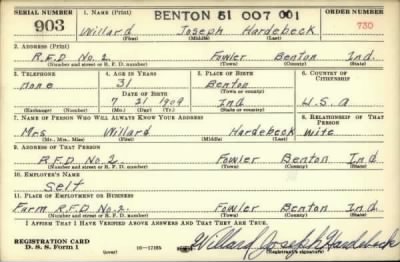 SERIAL NUMBER 1. NAME (Print) BENTON 51 007 001 ORDER NUMBER
903 Willard Joseph Hardebeck 730
(First) (Middle) (Last)
2. ADDRESS (Print)
R.F.D No. 2 Fowler Benton Ind.
(Number and street or R. F. D. number) (Town) (County) (State)
3. TELEPHONE 4. AGE IN YEARS 5. PLACE OF BIRTH 6. COUNTRY OF CITIZENSHIP
none 31 Benton
DATE OF BIRTH (Town or county)
7 21 1909 Ind U.S.a
(Exchange) (Number) (Mo.) (Day) (Yr.) (State or country)
7. NAME OF PERSON WHO WILL ALWAYS KNOW YOUR ADDRESS 8. RELATIONSHIP OF THAT PERSON
Mrs Willard Hardebeck wife
(Mr., Mrs., Miss) (First) (Middle) (Last)
9. ADDRESS OF THAT PERSON
R.F.D No. 2 Fowler Benton Ind
(Number and street or R. F. D. number) (Town) (County) (State)
10. EMPLOYER'S NAME
Self
11. PLACE OF EMPLOYMENT OR BUSINESS
Farm R.F.D No. 2. Fowler Benton Ind.
(Number and street or R. F. D. number) (Town) (County) (State)
I AFFIRM THAT I HAVE VERIFIED ABOVE ANSWERS AND THAT THEY ARE TRUE.
REGISTRATION CARD
D. S. S. Form 1 16—17105 Willard Joseph Hardebeck
(Registrant's signature)